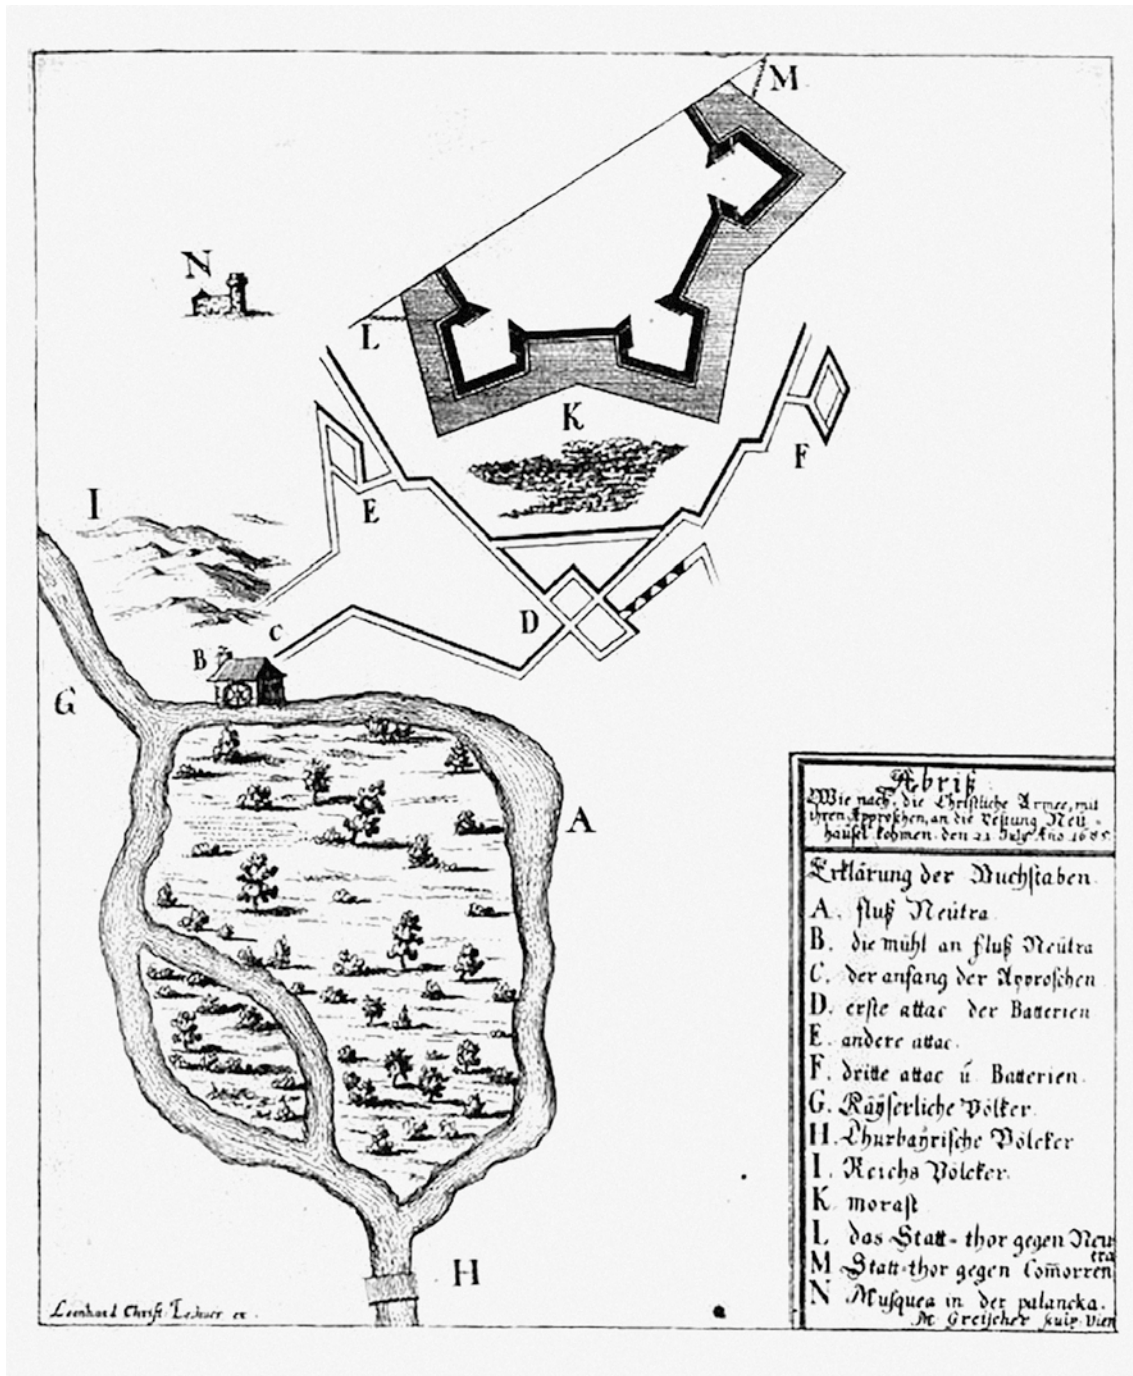 M
N
L
K
F
I
E
D
C
B
G
A
H
Abriß
Wie nach, die Christliche Armee, mit
ihren Approschen, an die Vestung Neü-
häusel kohmen. den 21 July Año 1685
Erklärung der Buchstaben.
A. fluß Neütra
B. die mühl an fluß Neütra
C. der anfang der Approschen
D. erste attac der Batterien
E. andere attac.
F. dritte attac ū Batterien.
G. Käyserliche Völker.
H. Churbayrische Völcker
I. Reichs Völcker.
K morast
L das Statt-thor gegen Neu
tra
M Statt-thor gegen Com̄orren
N Musquea in der palancka.
Leonhard Christ: ex.
M Greischer sculp: Vien